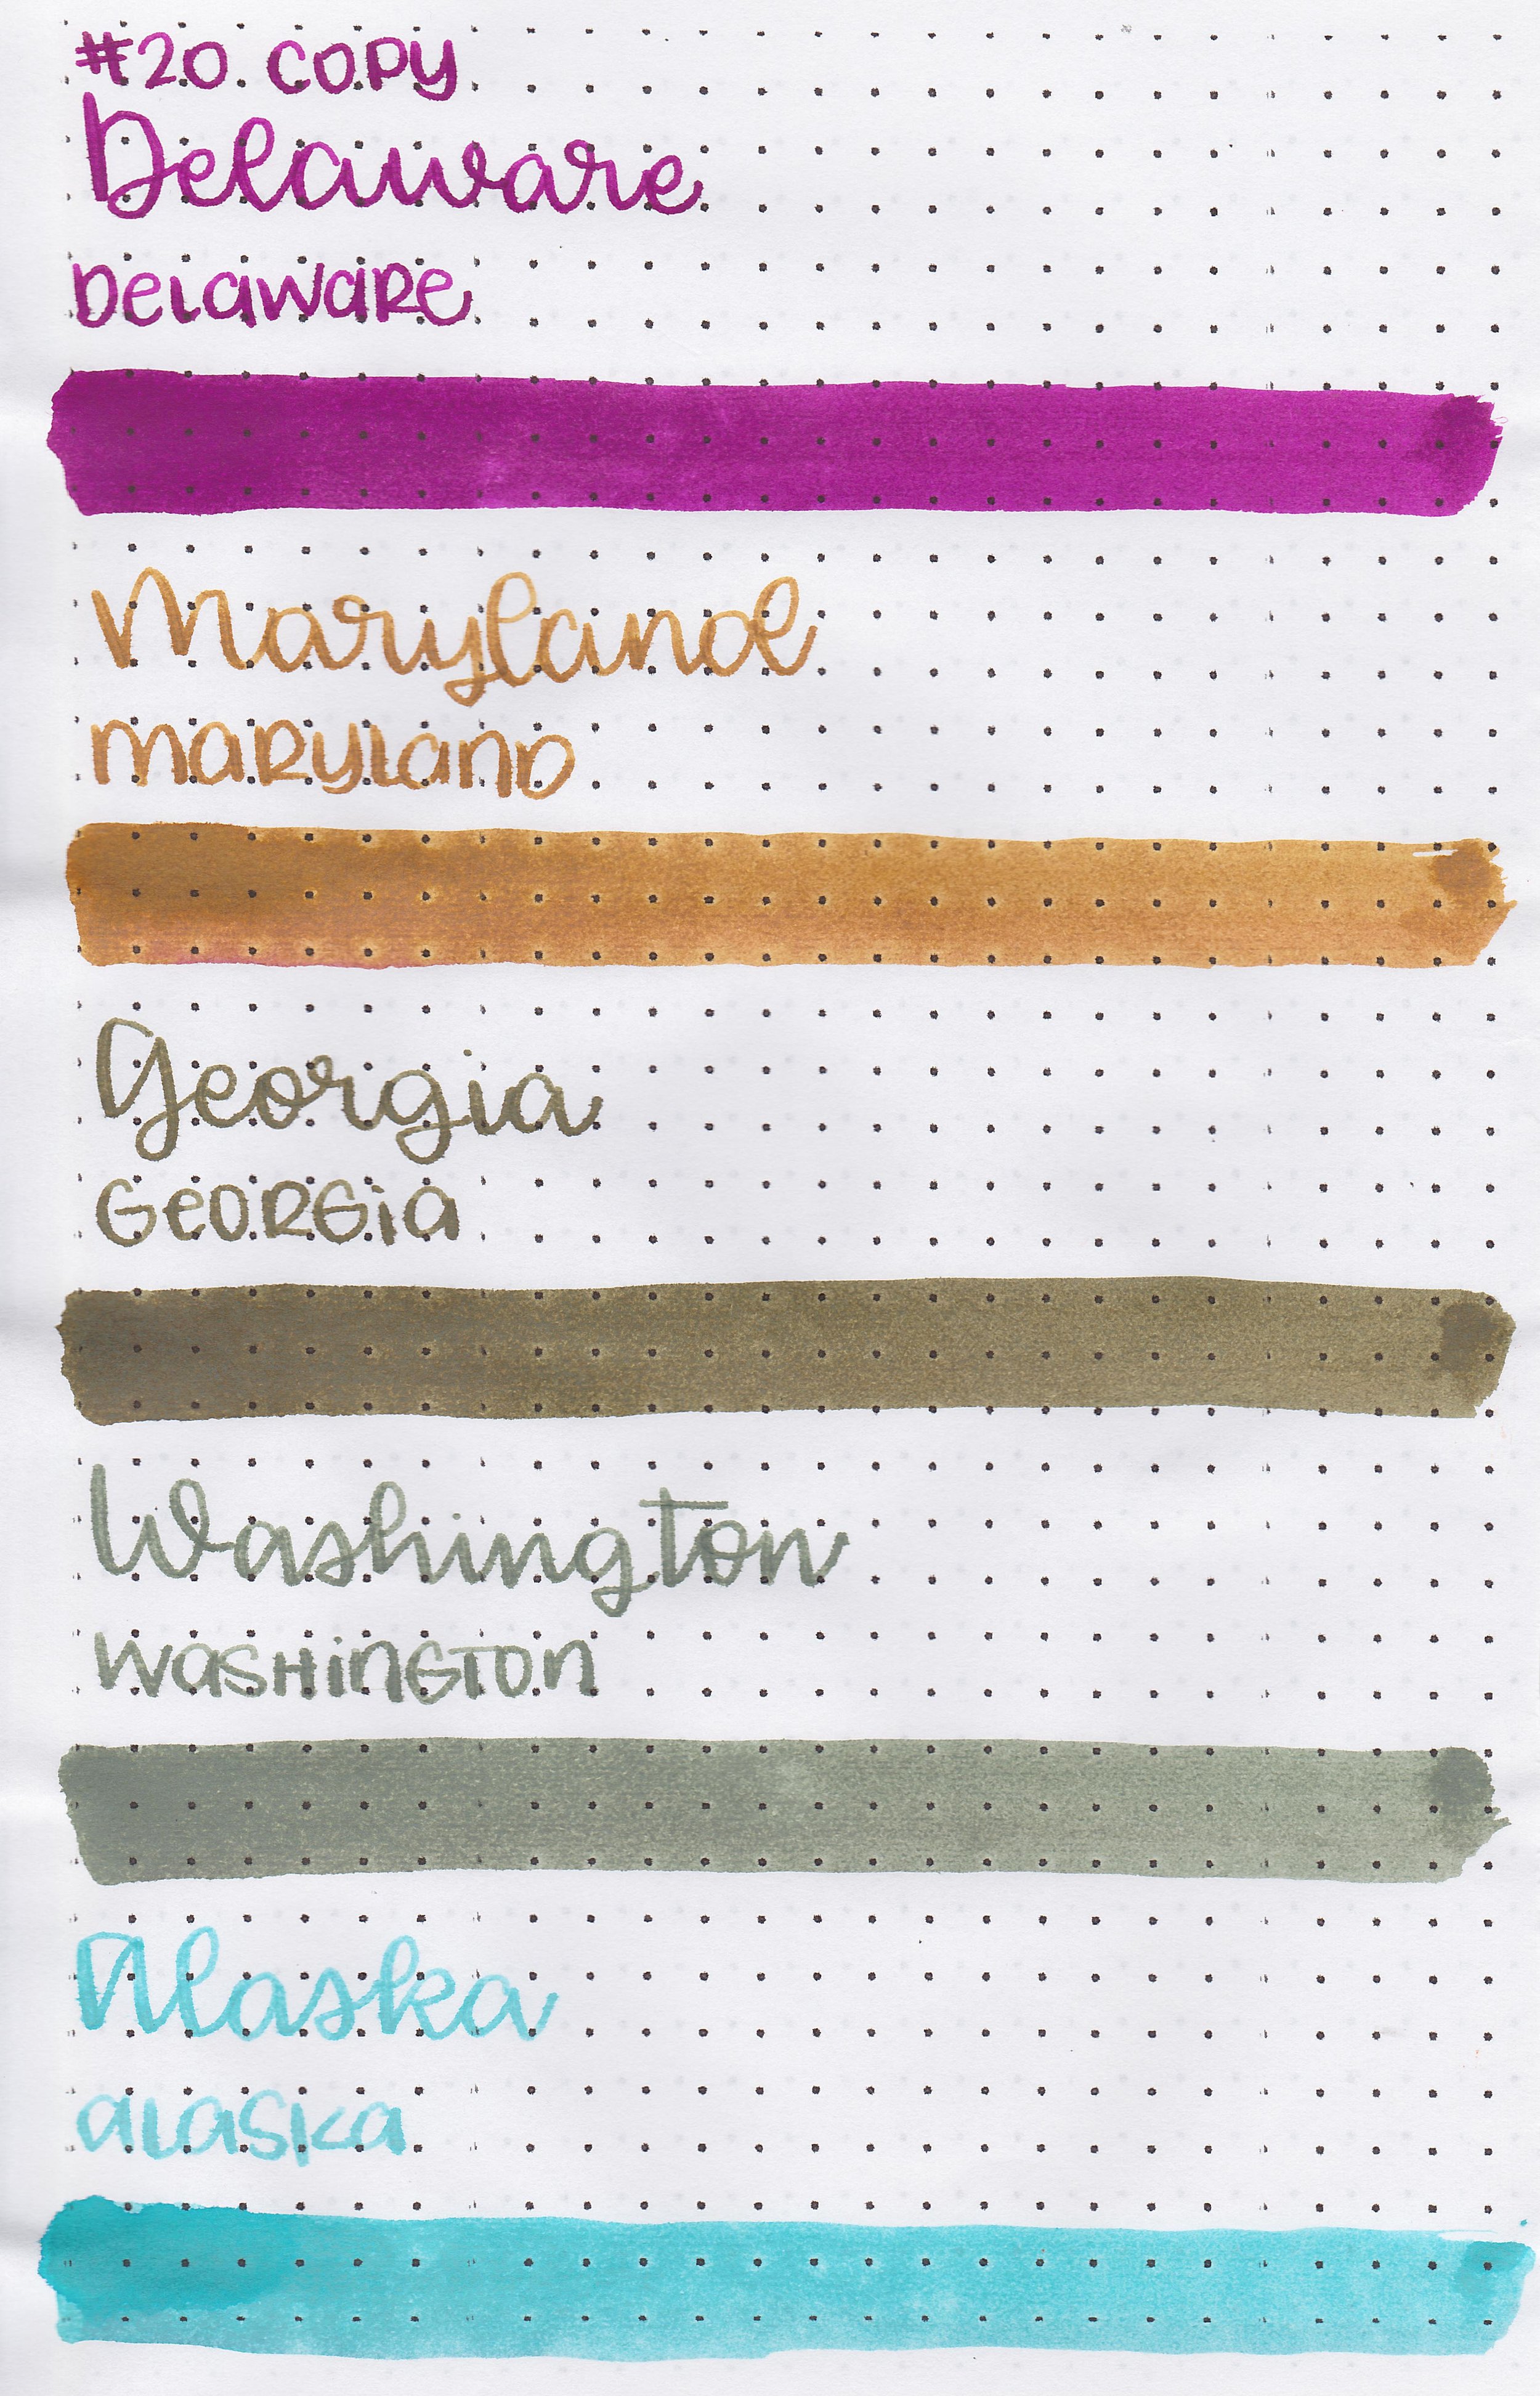 #20 COPY
Delaware
DelaWaRe
Maryland
MaRylanD
Georgia
GeORGia
Washington
WasHinGTOn
Alaska
alaska